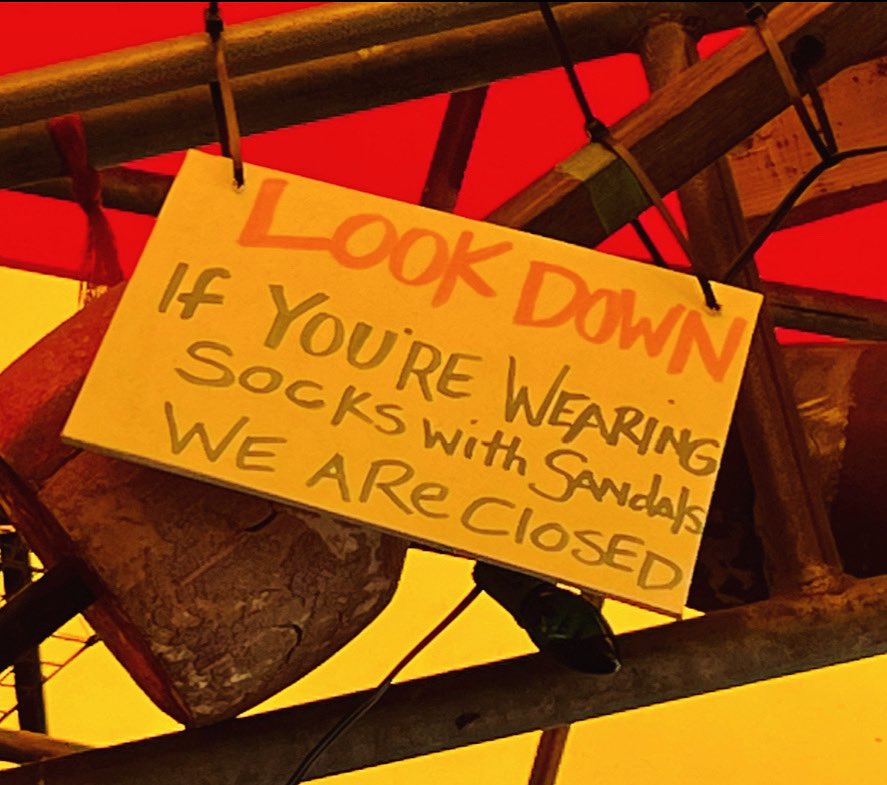 LOOK DOWN
If YOU'RE WEARING
SOCKS with SANdals
WE ARe ClOSED